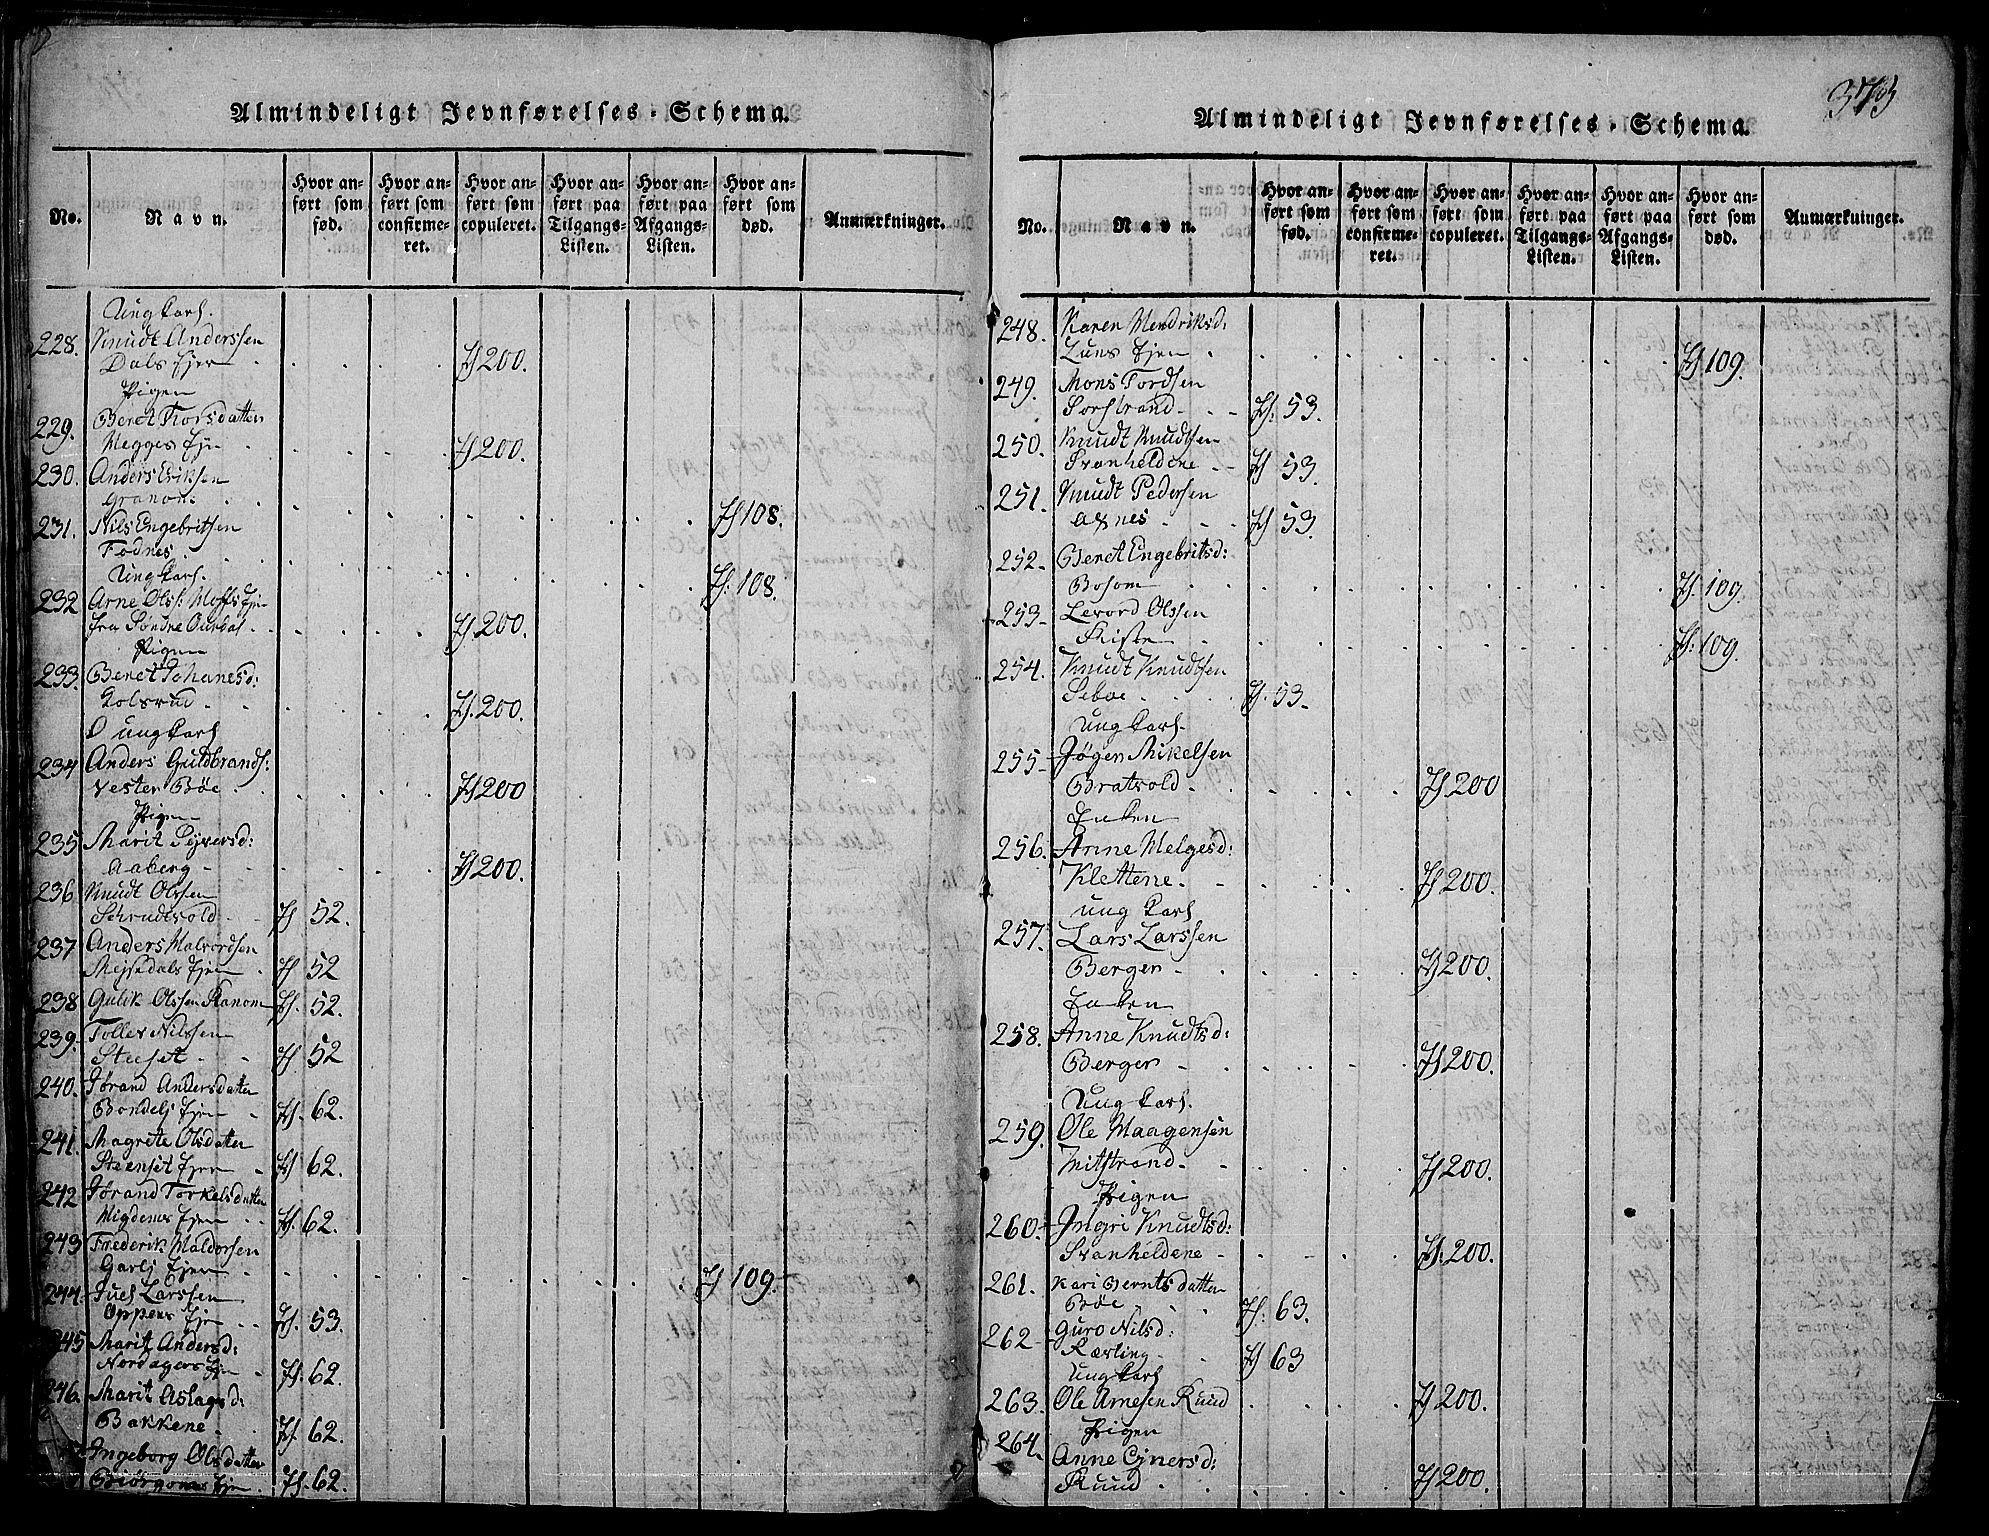 Almindeligt Jevnførelses-Schema.
No.
Navn.
Hvor anført som fød.
Hvor anført som confirmeret.
Hvor anført som copuleret.
Hvor anført paa Tilgangs-Listen.
Hvor anført paa Afgangs-Listen.
Hvor anført som død.
Anmærkninger.
Ung Karl.
228. Knudt Anderssen
Dals Ejer 200.
Pigen
229. Beret Thorsdatter
Megges Ejn 200.
230. Anders Eriksen
Granom 108.
231. Nils Engebritsen
Fodnes. 108.
Ung Karl.
232 Arne Olss:
fra Søndre Ourdal 200.
Pigen
233. Beret Johanesd:
Golsrud 200.
Ung Karl
234 Anders Guldbrands:
Vester Bøe 200
Pigen
235 Marit Syversd:
Aaberg 200.
236 Knudt Olssen
52.
237 Anders Halvordsen
52
238 Gulik Olssen Ranom 52.
239. Tollev Nilssen
Steeset 52
240. Jørand Andersdatter
Bondelj Ejen 62.
241. Magrete Olsdatter
Steenset Ejen 62.
242 Jørand Torkelsdatter
62.
243 Frederik Haldorsen
Garlj Ejen 109.
244. Juel Larssen
Oppens Ejn 53.
245 Marit Andersd:
Nordagers Ejn 62.
246. Marit Aslagsd:
Bakkene 62.
Ingeborg Olsdatter
62.
Almindeligt Jevnførelses-Schema.
373
No.
Navn.
Hvor anført som fød.
Hvor anført som confirmeret.
Hvor anført som copuleret.
Hvor anført paa Tilgangs-Listen.
Hvor anført paa Afgangs-Listen.
Hvor anført som død.
Anmærkninger.
248. Karen Hendriksd:
Ejen 109.
249. Mons Tordsen
Sorstrand 53.
250. Knudt Knudtsen
Svanheldene 53.
251. Knudt Pedersen
53.
252. Beret Engebritsd:
109.
253. Levord Olssen
109.
254. Knudt Knudtsen
Seboe 53.
Ung Karl.
255. Jøgen Mikelsen
Bratvold 200
Enken
256. Anne Helgesd:
Klettene 200.
Ung Karl
257. Lars Larssen
Bergen 200.
Enken
258. Anne Knudtsd:
Bergen 200.
Ung Karl.
259. Ole Haagensen
200.
Pigen
260. Ingri Knudtsd:
Svanheldene 200.
261. Kari Berntsdatter
Bøe 63.
262 Guro Nilsd:
63
Ung Karl
263. Ole Arnesen Ruud 200.
Pigen
264. Anne Ejnersd:
Ruud 200.